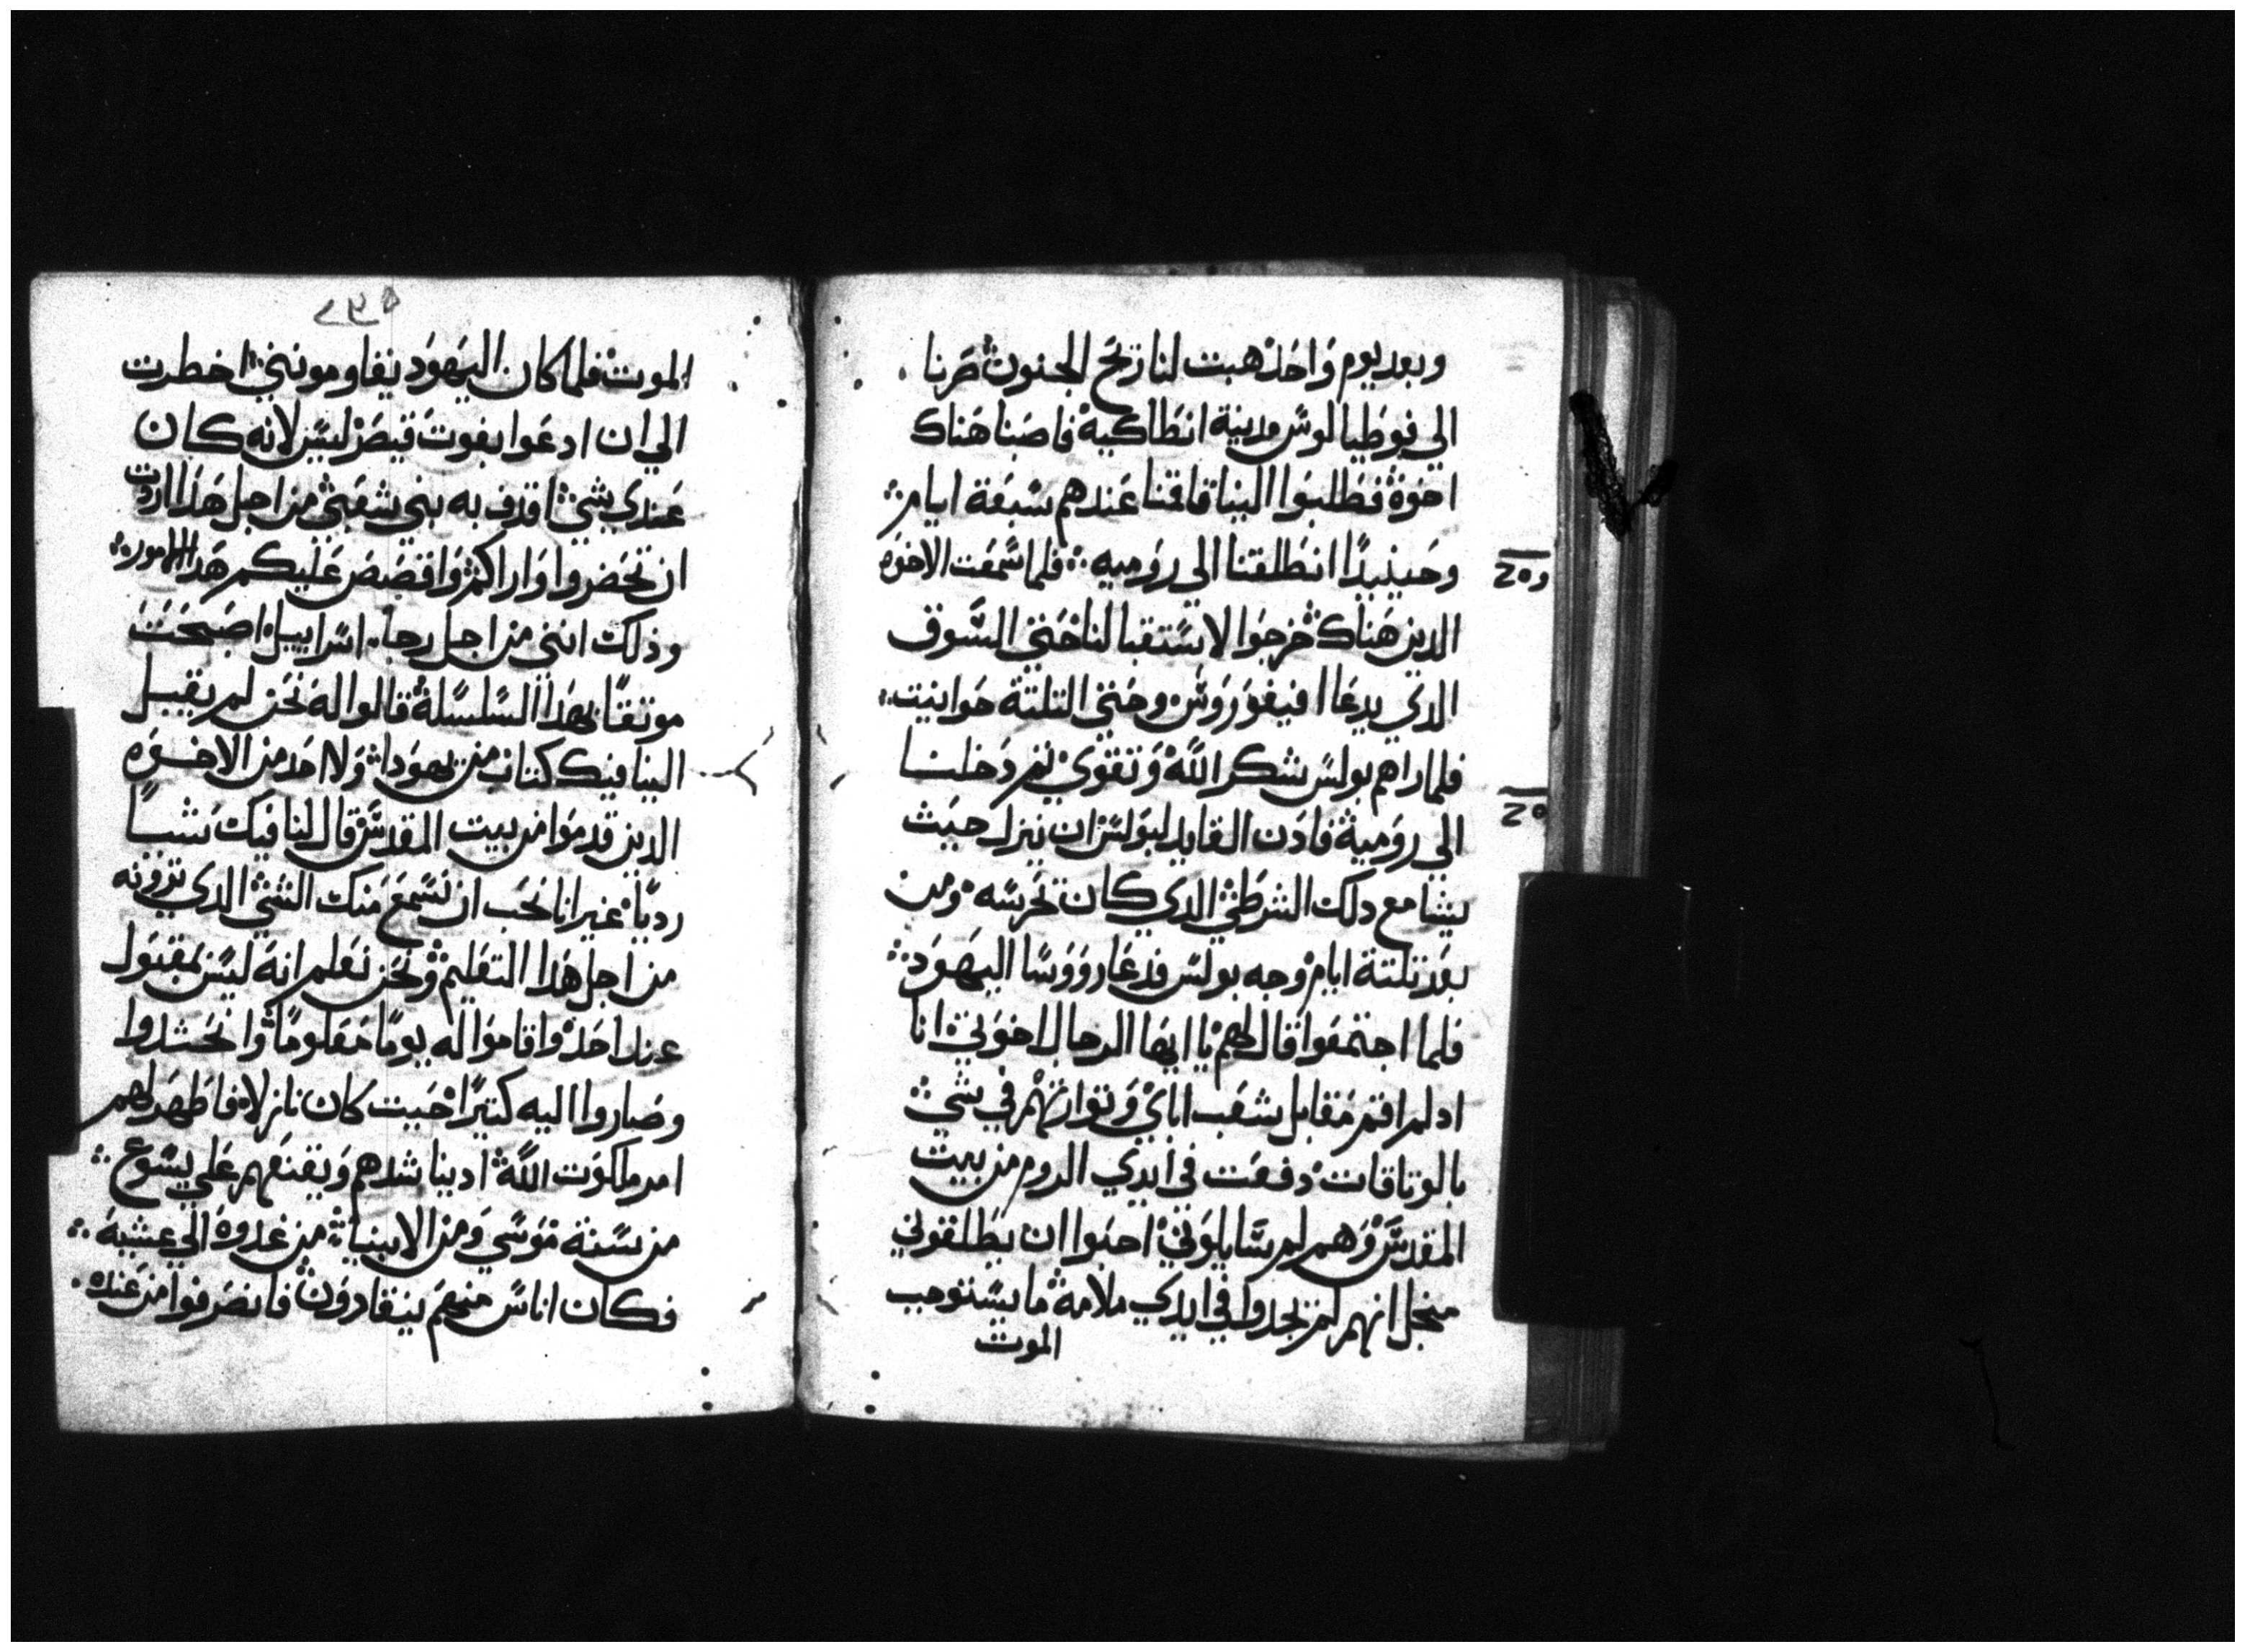 وبعد يوم واحد هبت لنا ريح الجنوب صرنا
الي فوطيالوس مدينة انطاكية فاصبنا هناك
اخوة فطلبوا الينا فاقمنا عندهم سبعة ايام
وحينيدا انطلقنا الي روميه فلما سمعت الاخوه
الدين هناك خرجوا لاستقبالنا حتي السوق
الدي يدعا افيفوروس وحتي التلتة حوانيت
فلما راهم بولس شكر الله وتقوي تم دخلنا
الي رومية فادن القايد لبولس ان ينزل حيت
يشا مع دلك الشرطي الدي كان تحرسه ومن
بعد تلتة ايام وجه بولس فدعا رووسا اليهود
فلما اجتمعوا قال لهم يا ايها الرجال اخوتي انا
اد لم اقم مقابل شعب اباي وتوراتهم في شي
بالوتاقات دفعت في ايدي الروم من بيت
المقدس وهم لم سايلوني احبوا ان يطلقوني
منجل انهم لم يجدوا في ايدي ملامة ما يستوجب
الموت
الموت فلما كان اليهود يقاومونني اخطرت
الي ان ادعوا بغوت قيصر ليس لانه كان
عندي شي اقدف به بني شعبي من اجل هدا اردت
ان تحضروا واراكم واقصص عليكم هدا الامور
وذلك انني من اجل رجا اسراييل اصبحت
موتقا بهدا السلسلة قالوا له نحن لم يقبل
الينا فيك كتاب من يهودا ولا احد من الاخوه
الدين قدموا من بيت المقدس قال لنا فيك شيا
رديا غير انا نحب ان نسمع منك الشي الدي تروته
من اجل هدا التعليم ونحن نعلم انه ليس بمقبول
عند احد واقاموا له يوما معلوما وانحشدوا
وصاروا اليه كتيرا حيت كان نازلا فاظهر لهم
امر ملكوت الله اد يناشدهم ويقنعهم علي يسوع
من سنة موسي ومن الانبيا من غدوة الي عشية
فكان اناس منهم ينقادون فانصرفوا من عنده